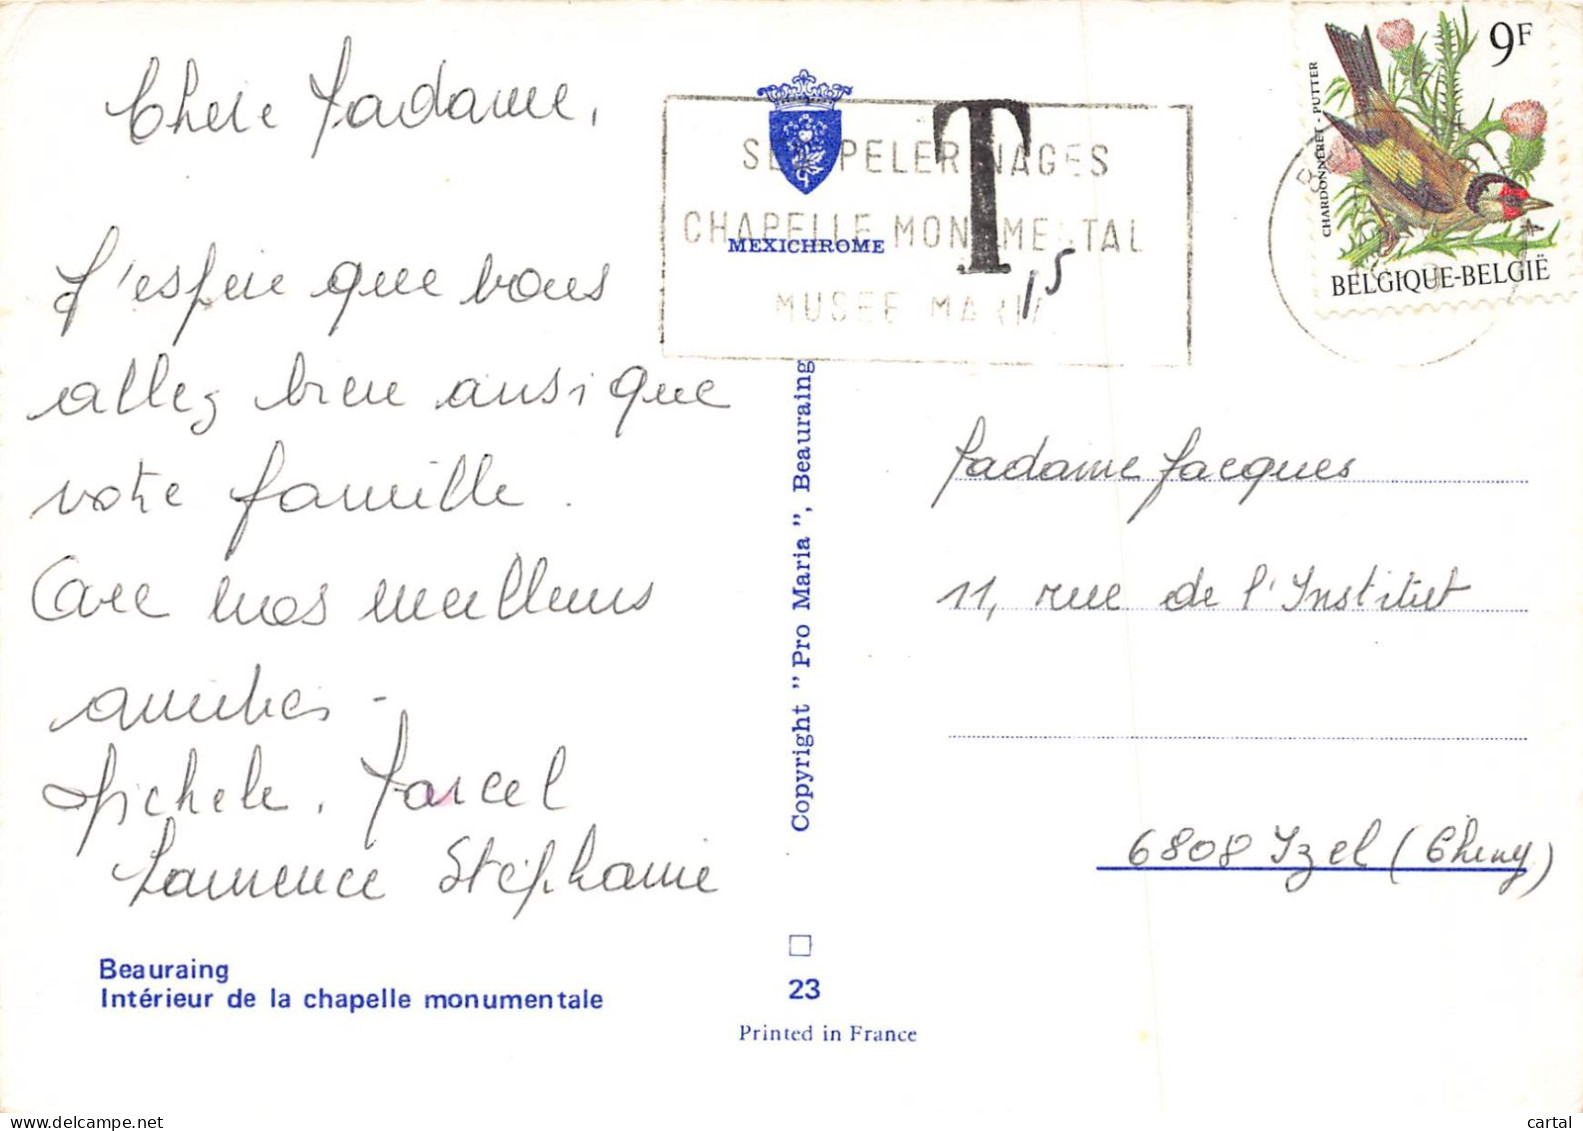 Chère Madame,
J'espère que vous
allez bien ainsi que
votre famille.
Avec nos meilleurs
amitiés -
Michele, Marcel
Laurence Stéphanie
Beauraing
Intérieur de la chapelle monumentale
MEXICHROME
PELERINAGES
CHAPELLE MONUMENTAL
MUSEE MARIA
T
15
Copyright " Pro Maria ", Beauraing
23
Printed in France
9F
CHARDONNERET - PUTTER
BELGIQUE-BELGIË
Madame Jacques
11, rue de l'Institut
6808 Izel (Chiny)
cartal
delcampe.net